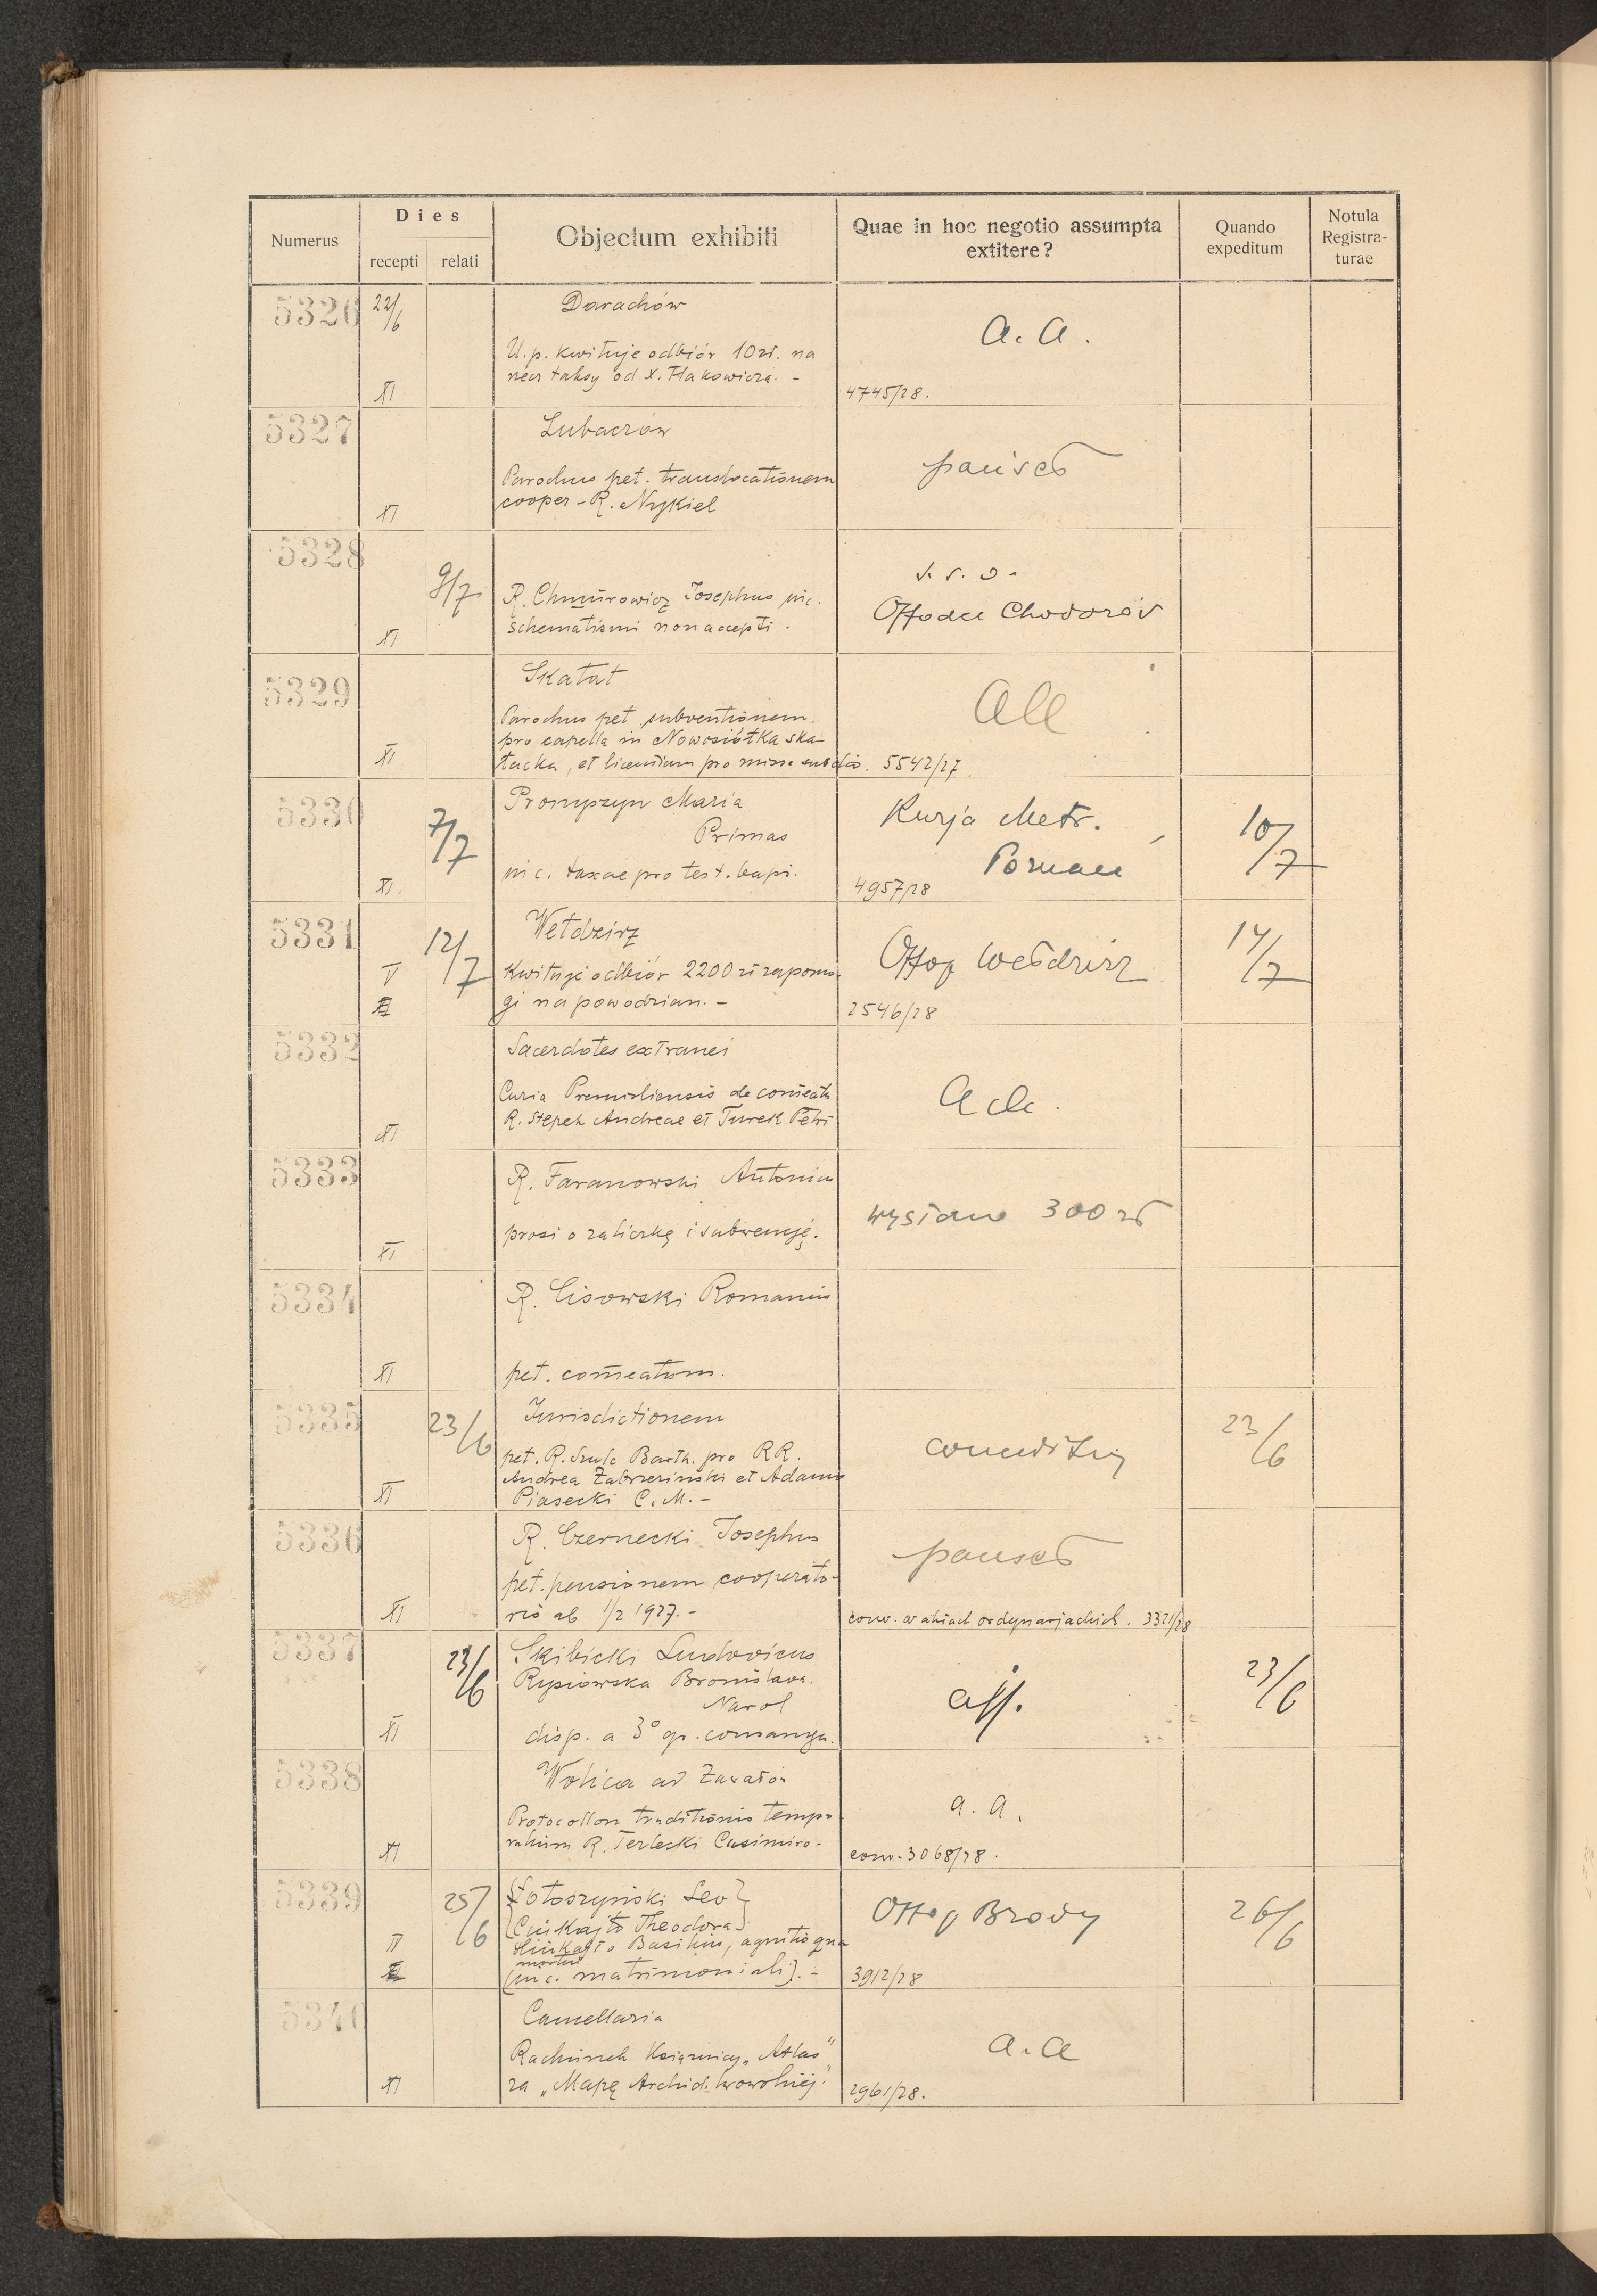 Numerus
Dies
recepti relati
Objectum exhibiti
Quae in hoc negotio assumpta
extitere?
Quando
expeditum
Notula
Registra-
turae
5326 22/6
XI
Darachów
U.p. kwituje odbiór 10 zł. na
taksy od X.
a. a.
4745/28.
5327
XI
Lubaczów
Parochus pet. translocationem
cooper - R. Nykiel
5328
XI
9/7
R. Chmurowicz Josephus
schematismi non accepti.
Chodorów
5329
XI
Skałat
Parochus pet. subventionem
pro capella in Nowosiółka ska-
łacka, et licentiam pro missa
5542/27
5330
XI
7/7
Maria
Primas
nic. taxae pro test. bapt.
Kurja Metr.
Poznań
4957/28
10/7
5331
V
12/7
Wełdzirz
Kwituje odbiór 2200 zł zapomo-
gi na powodzian. -
Offop Wełdzirz
2546/28
14/7
5332
XI
Sacerdotes extranei
Curia Premisliensis de comeatu
R. Stepek Andreae et Turek Petri
5333
XI
R. Faranowski Antonius
prosi o zaliczkę i subwencję.
wysłano 300 zł
5334
XI
R. Lisowski Romanus
pet. comeatum.
5335
XI
23/6
Jurisdictionem
pet. R. Szulc Barth. pro RR.
Andrea Zabrzeziński et Adamo
Piasecki C. M. -
23/6
5336
XI
R. Czernecki Josephus
pet. pensionem cooperato-
ris ab 1/2 1927. -
conv. w aktach ordynarjackich. 3321/28
5337
XI
23/6
Skibicki Ludovicus
Rysiowska Bronislava.
Narol
disp. a 3° gr. consangu.
aff.
23/6
5338
XI
Wolica ad
Protocollon traditionis tempo-
ralium R. Terlecki Casimiro.
a. a.
conv. 3068/28.
5339
IV
25/6
Leo
Theodora
Basilius, agnitio qua
mortui
(in c. matrimoniali). -
Offop Brody
3912/28
26/6
5340
XI
Cancellaria
Rachunek Książnicy „Atlas"
za „Mapę Archid. lwowskiej."
a. a
2961/28.